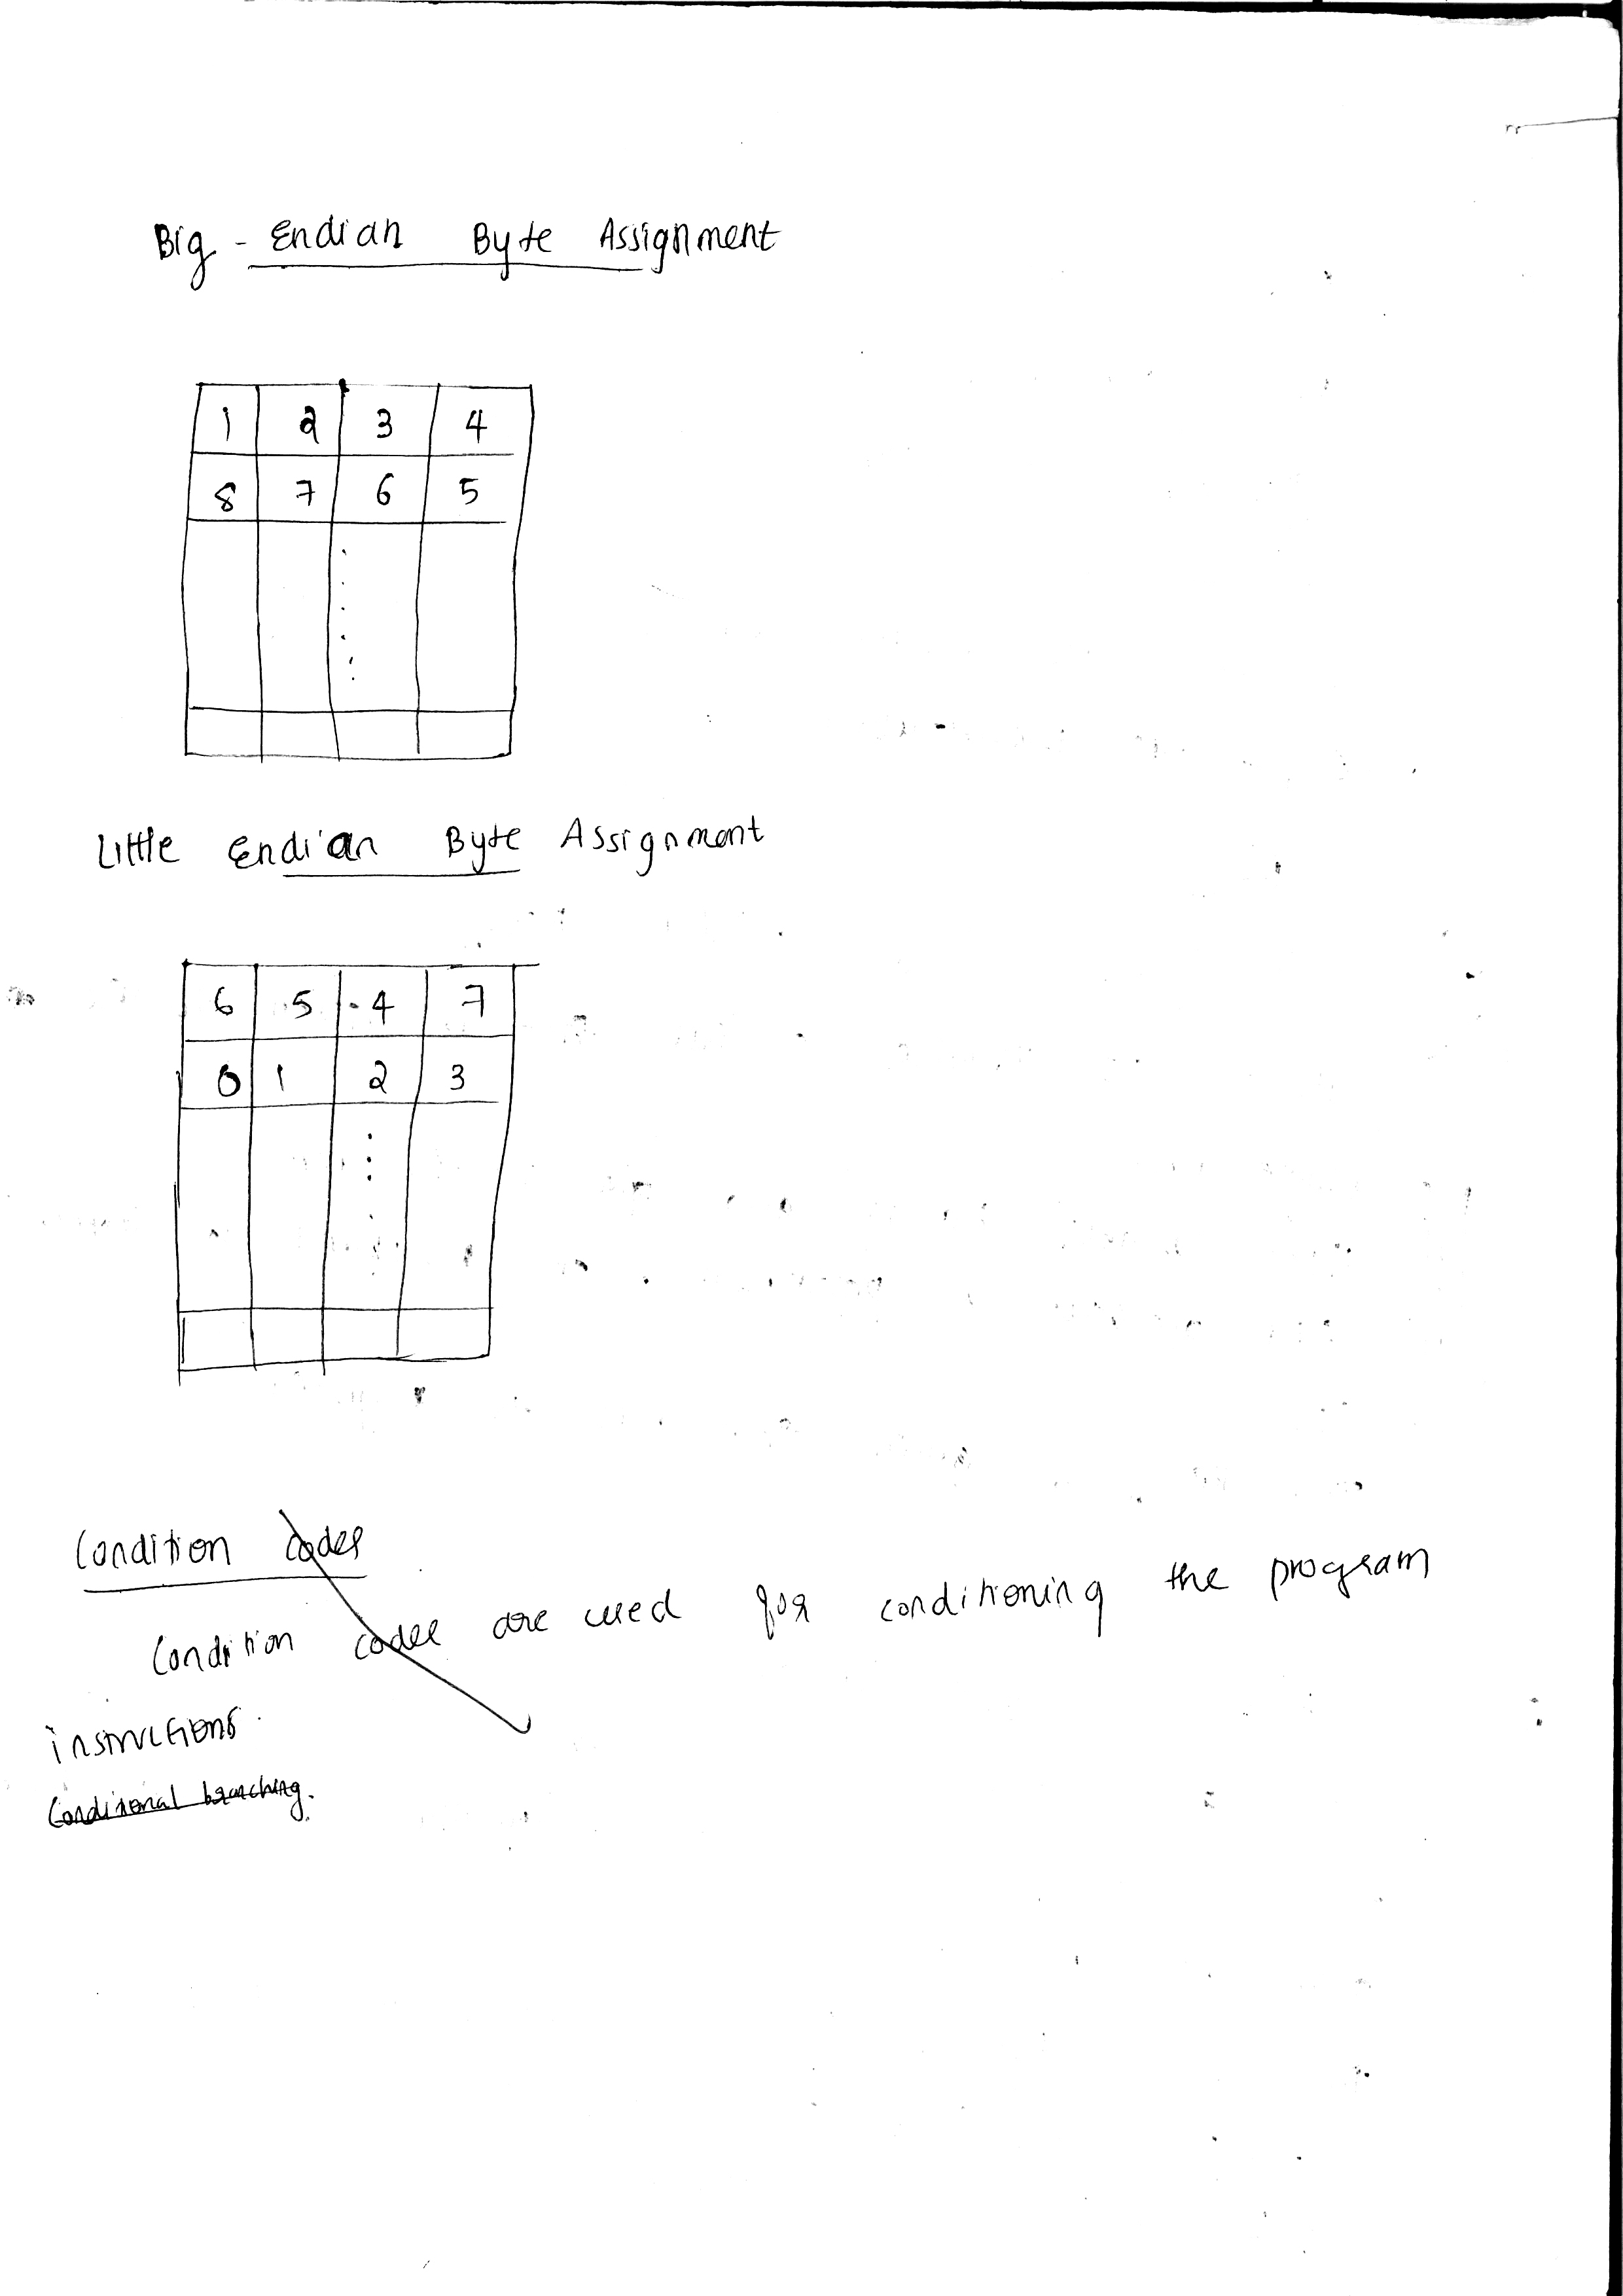 Big - Endian Byte Assignment
1 2 3 4
8 7 6 5
Little Endian Byte Assignment
6 5 4 7
0 1 2 3
Condition codes
Condition codes are used for conditioning the program
instructions.
Conditional branching.